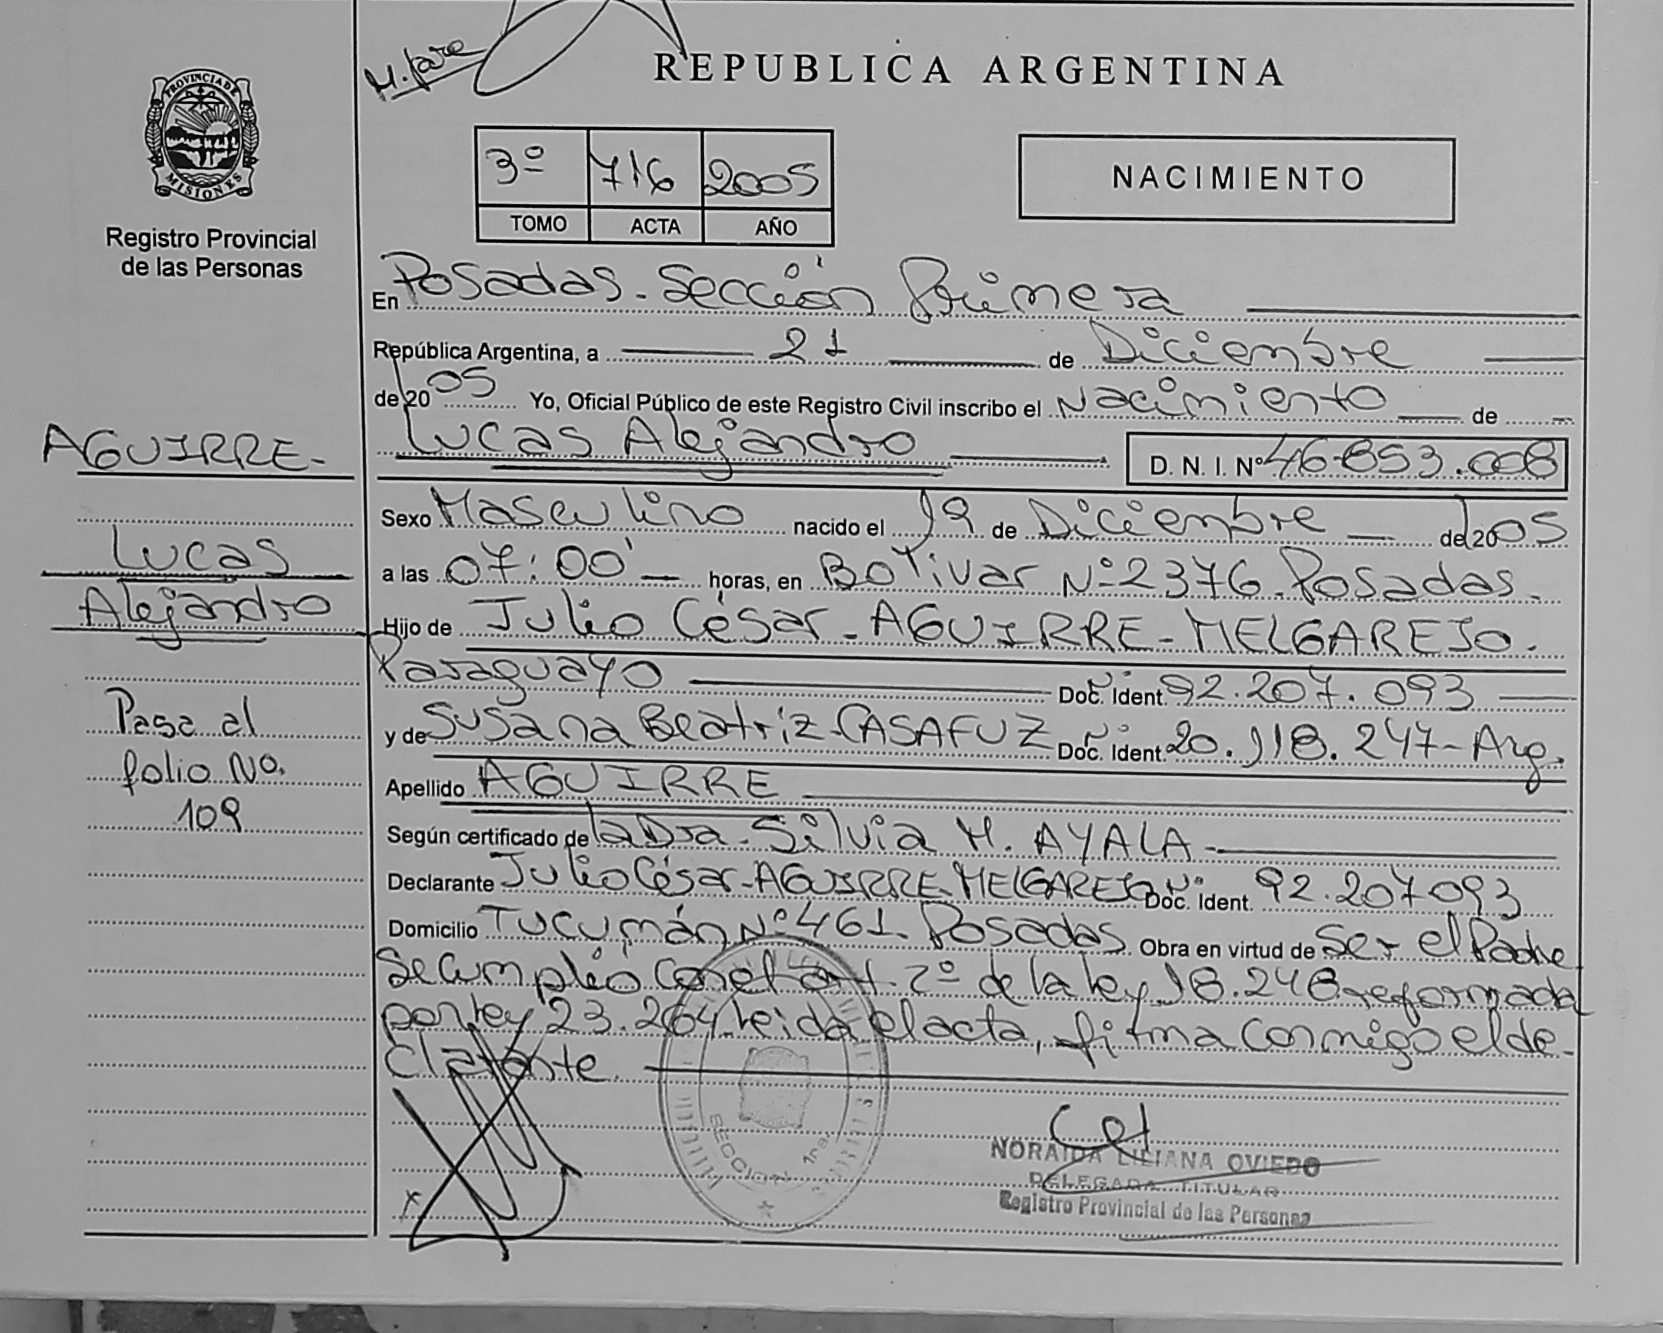 M. Jare
REPUBLICA ARGENTINA
PROVINCIA DE
MISIONES
Registro Provincial
de las Personas
3º 716 2005
TOMO ACTA AÑO
NACIMIENTO
En Posadas. Sección Primera
República Argentina, a 21 de Diciembre
de 2005 Yo, Oficial Público de este Registro Civil inscribo el Nacimiento de
Lucas Alejandro D. N. I. Nº 46.853.008
AGUIRRE.
Lucas
Alejandro
Pasa al
folio No.
109
Sexo Masculino nacido el 19 de Diciembre de 2005
a las 07:00' horas, en Bolivar Nº 2376. Posadas.
Hijo de Julio César. AGUIRRE-MELGAREJO.
Paraguayo Doc. Ident. Nº 92.207.093
y de Susana Beatriz CASAFUZ Doc. Ident. Nº 20.118.247- Arg.
Apellido AGUIRRE
Según certificado de la Dra. Silvia M. AYALA
Declarante Julio César-AGUIRRE-MELGAREJO Doc. Ident. Nº 92.207.093
Domicilio Tucumán Nº 461. Posadas Obra en virtud de Ser el Padre
Se Cumplió Con el art. 2º de la ley 18.248 reformada
por ley 23.264 leida el acta, firma Conmigo el de-
clarante.
SECCION 1ra.
NORAIDA LILIANA OVIEDO
DELEGADA TITULAR
Registro Provincial de las Personas